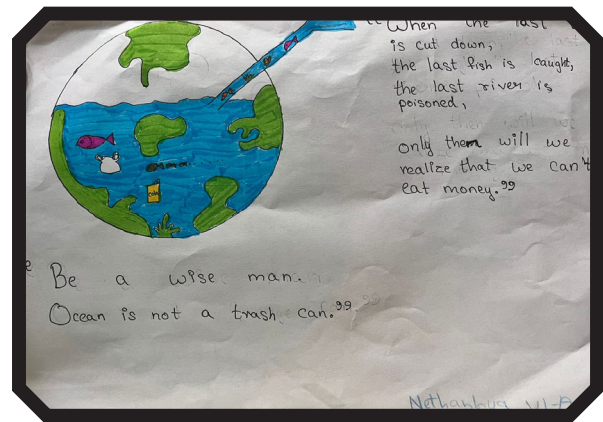 “ When the last
is cut down,
the last fish is caught,
the last river is
poisoned,
only them will we
realize that we can't
eat money.”
Be a wise man.
Ocean is not a trash can.”